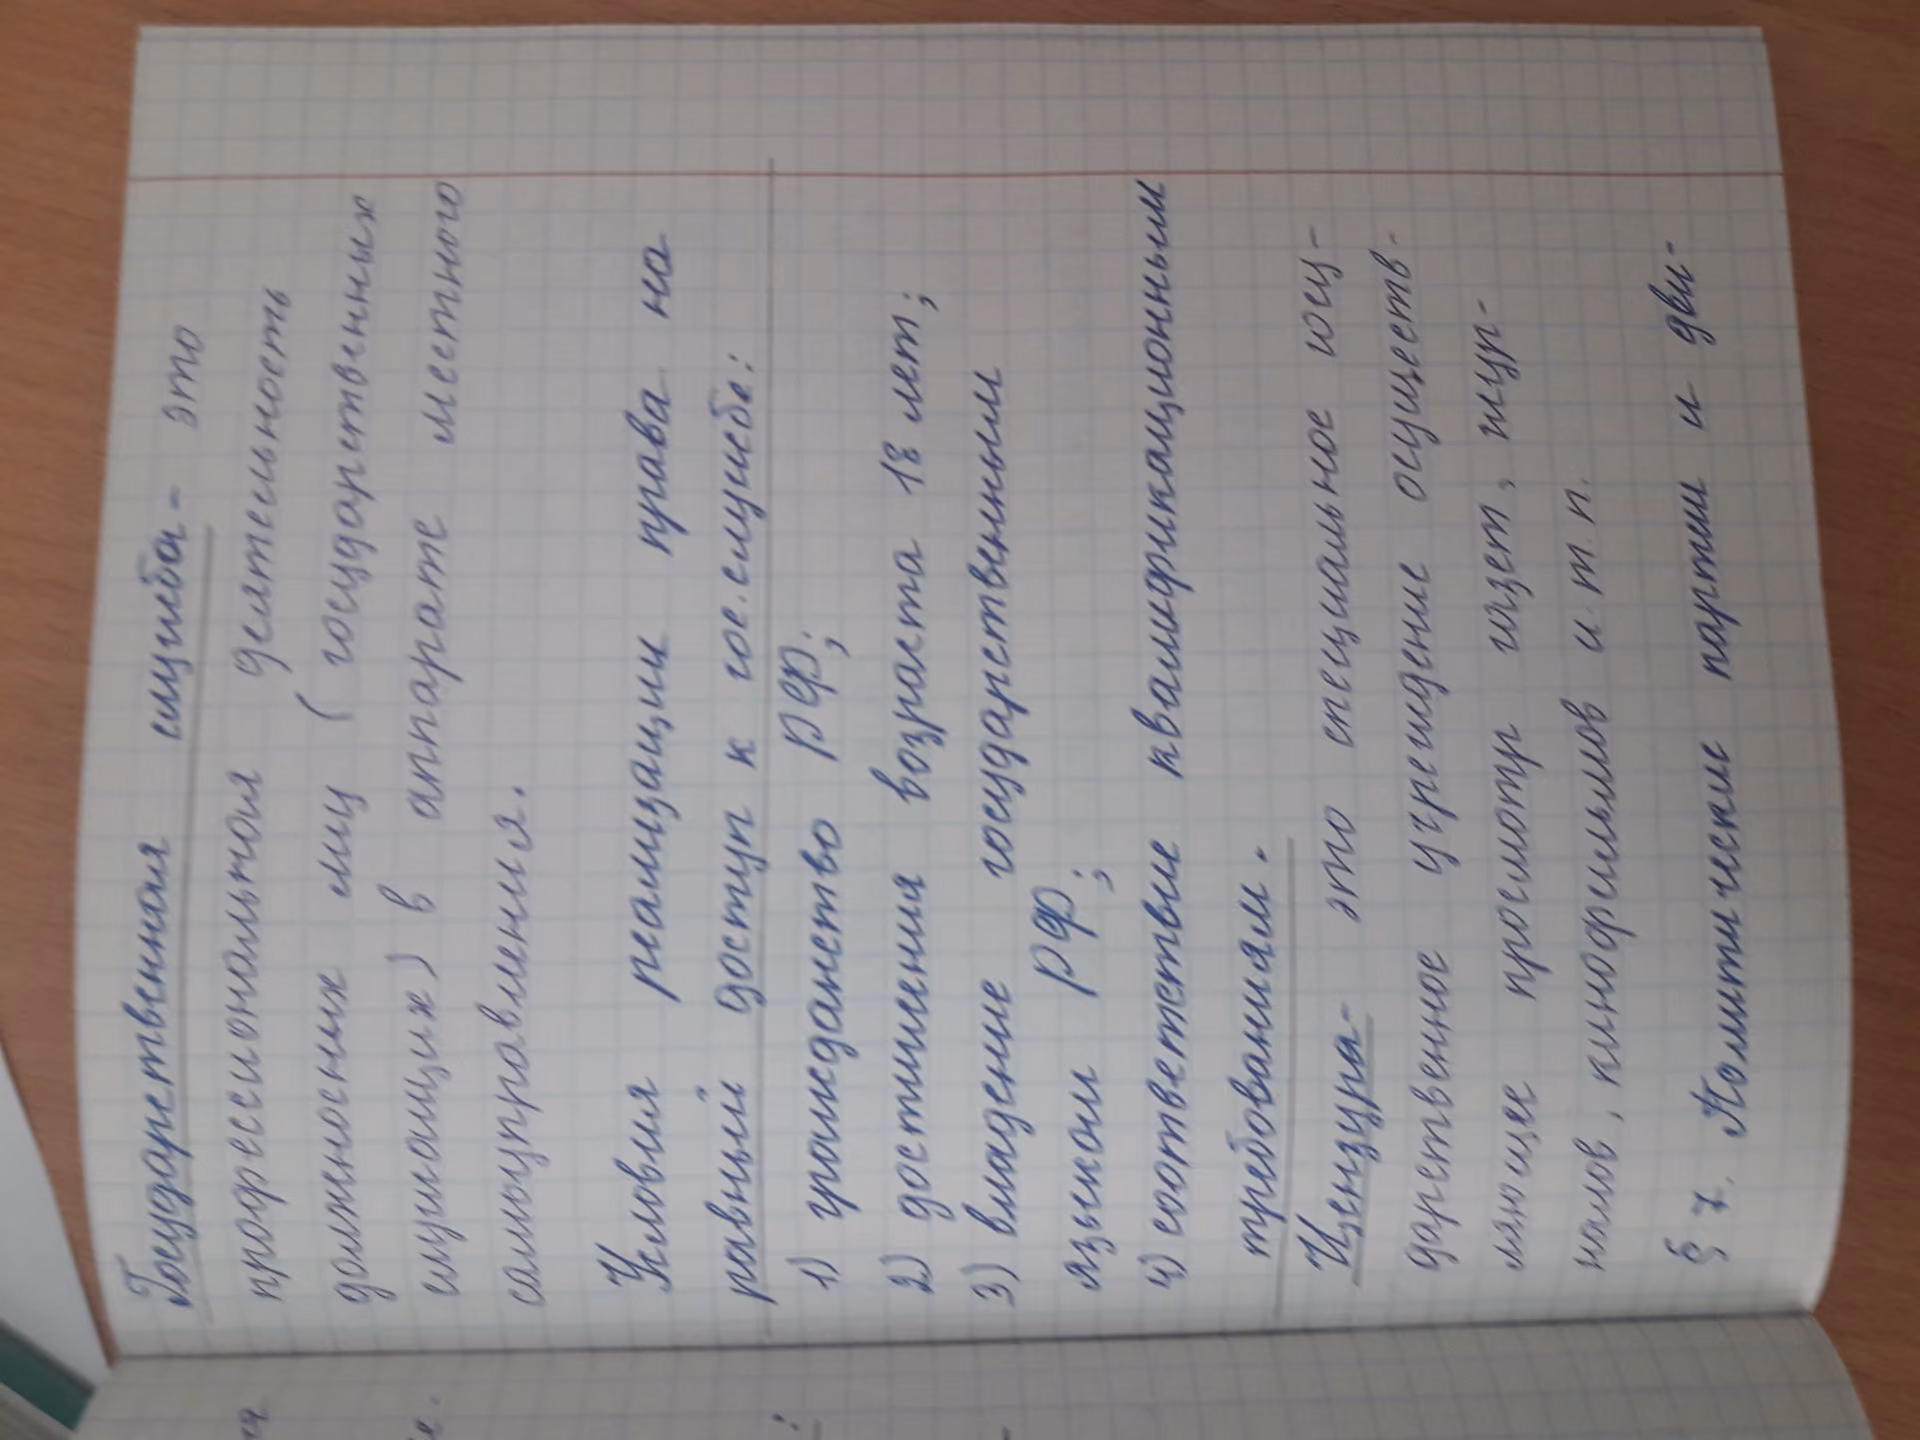 Государственная служба - это
профессиональная деятельность
должносных лиц ( государственных
служащих) в аппарате местного
самоуправления.
Условия реализации права на
равный доступ к гос.службе:
1) гражданство РФ;
2) достижения возраста 18 лет;
3) владение государственным
языком РФ;
4) соответствие квалификационным
требованиям.
Цензура- это специальное госу-
дарственное учреждение осуществ-
ляющее просмотр газет, жур-
налов, кинофильмов и.т.п.
§ 7. Политические партии и дви-